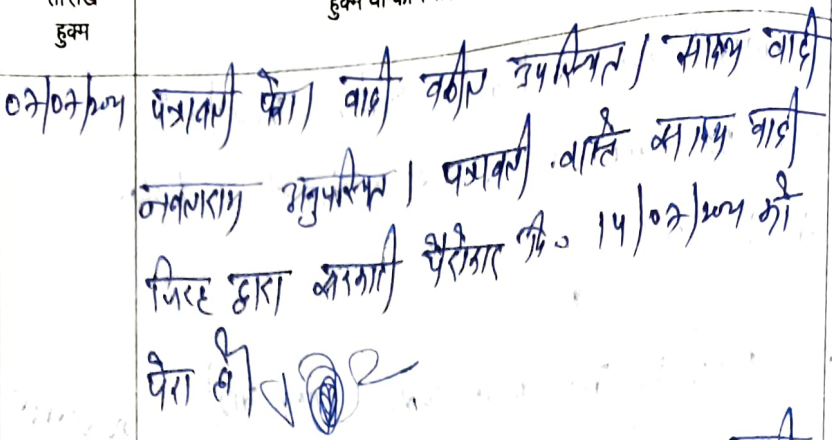 हुक्म
पत्रावली पेश। वादी वकील उपस्थित। साक्ष्य वादी
नवलाराम अनुपस्थित। पत्रावली वास्ते साक्ष्य वादी
जिरह द्वारा सरकारी पैरोकार दि० 14/07/2024 को
पेश हो।